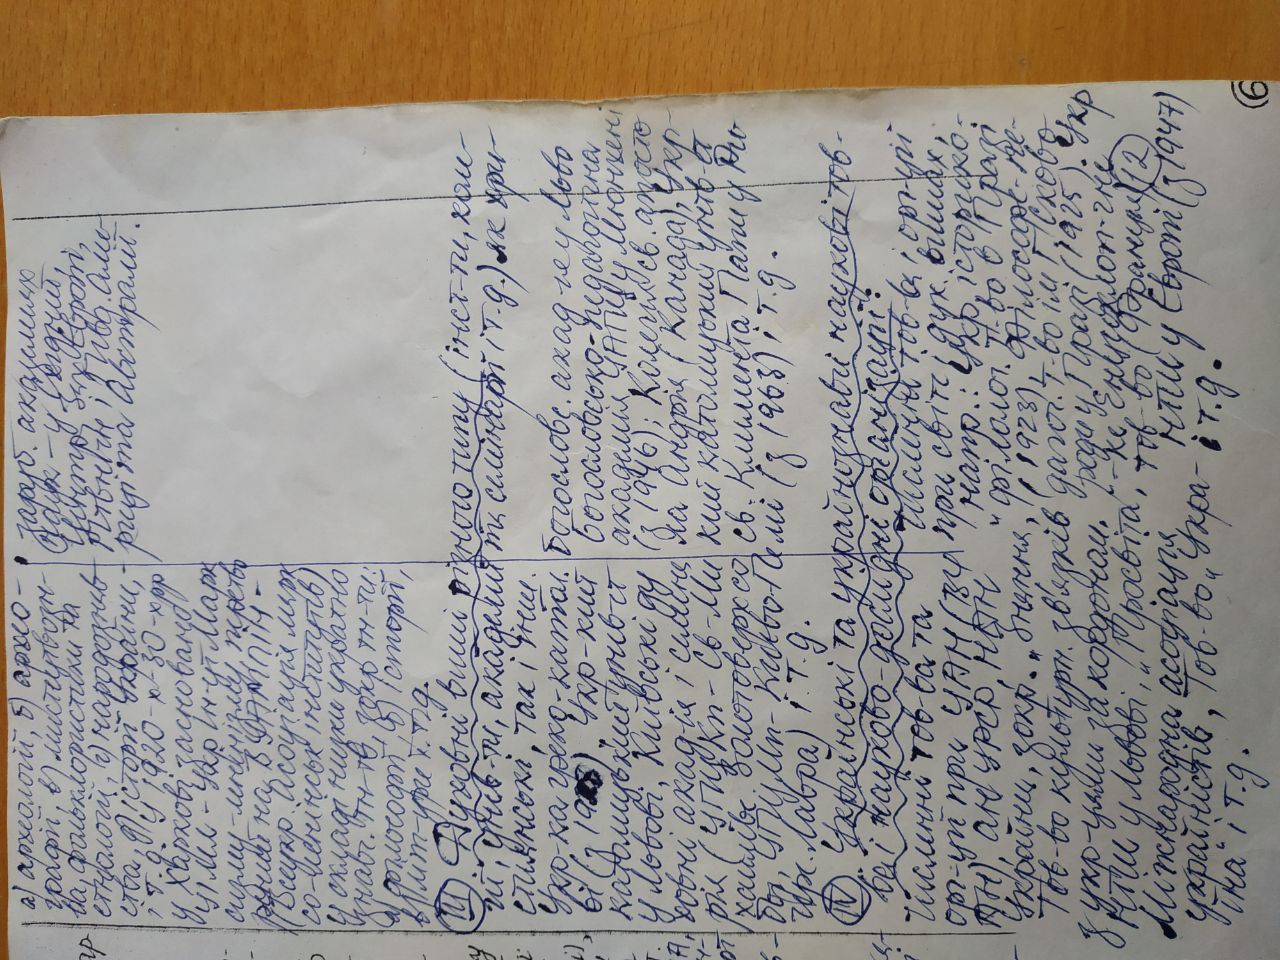 а) археології, б) архео-
графії, в) мистецтвозн-
ва, фольклористики та
етнології, г) народознав
ства, д) історії України, -
і т.д. У 1920-х-30-х рр
у Харкові засновано
УІМЛ - Укр Ін-ут Марк
сизму-ленінізму, перетво
рений на ВУАМЛІН -
(Всеукр. Асоціація марк
со-ленінськ інститутів)
у складі низки україно
знавч. ін-тів, зокр ін-ти:
а) філософії, б) історії,
в) літ-ури і т.д.
заруб. академіях
наук - у Східній,
Центр. Зах Європі,
Північн і Півд. Аме-
риці та Австралії.
III. Духовні виші різного типу (інст-ти, коле-
гії, унів-ти, академії та семінарії і т.д.) як хри-
стиянські, так і інш.
Укр-ка греко-катол. Богословс. акад-ія у Льво
ві (з Укр-кий
католицький унів-т
у Львові, Київські ду
ховні акад-ія і семіна
рія (УПЦ КП - Св-Ми
хайлівс. Золотоверхсо
бор, УПЦ МП - Києво-Пе
чрс. Лавра) і т.д.
Богословсько-педагогічна
академія УАПЦ у Мюнхені
(з 1946); Колегія св. апосто
ла Андрія (Канада), Укр-
кий католицький унів-т
св. Климента Папи у Ри
мі (з 1963) і т.д.
IV Українські та українознавчі наукові тов-
ва і науково-дослідні організації:
Численні тов-ва та
орг-ції при УАН (ВУ
АН), АН УРСР, НАН
України, зокр. „Знання",
Тов-во культурн. зв'язків
з укр-цями за кордоном.
НТШ у Львові, „Просвіта",
Міжнародна асоціація
україністів, Тов-во „Укра-
їна" і т.д.
Численні тов-ва і орг-ції
при світс і дух. вишах,
напр.: Укр. історико-
філолог. т-во в Празі
(1923), Філософс-пе-
дагог. т-во ім Г. Сково
роди у Празі (1925). Укр
-ке Енциклоп-чне
тов-во (Франція) 12
НТШ у Європі (з 1947)
і т.д.
6